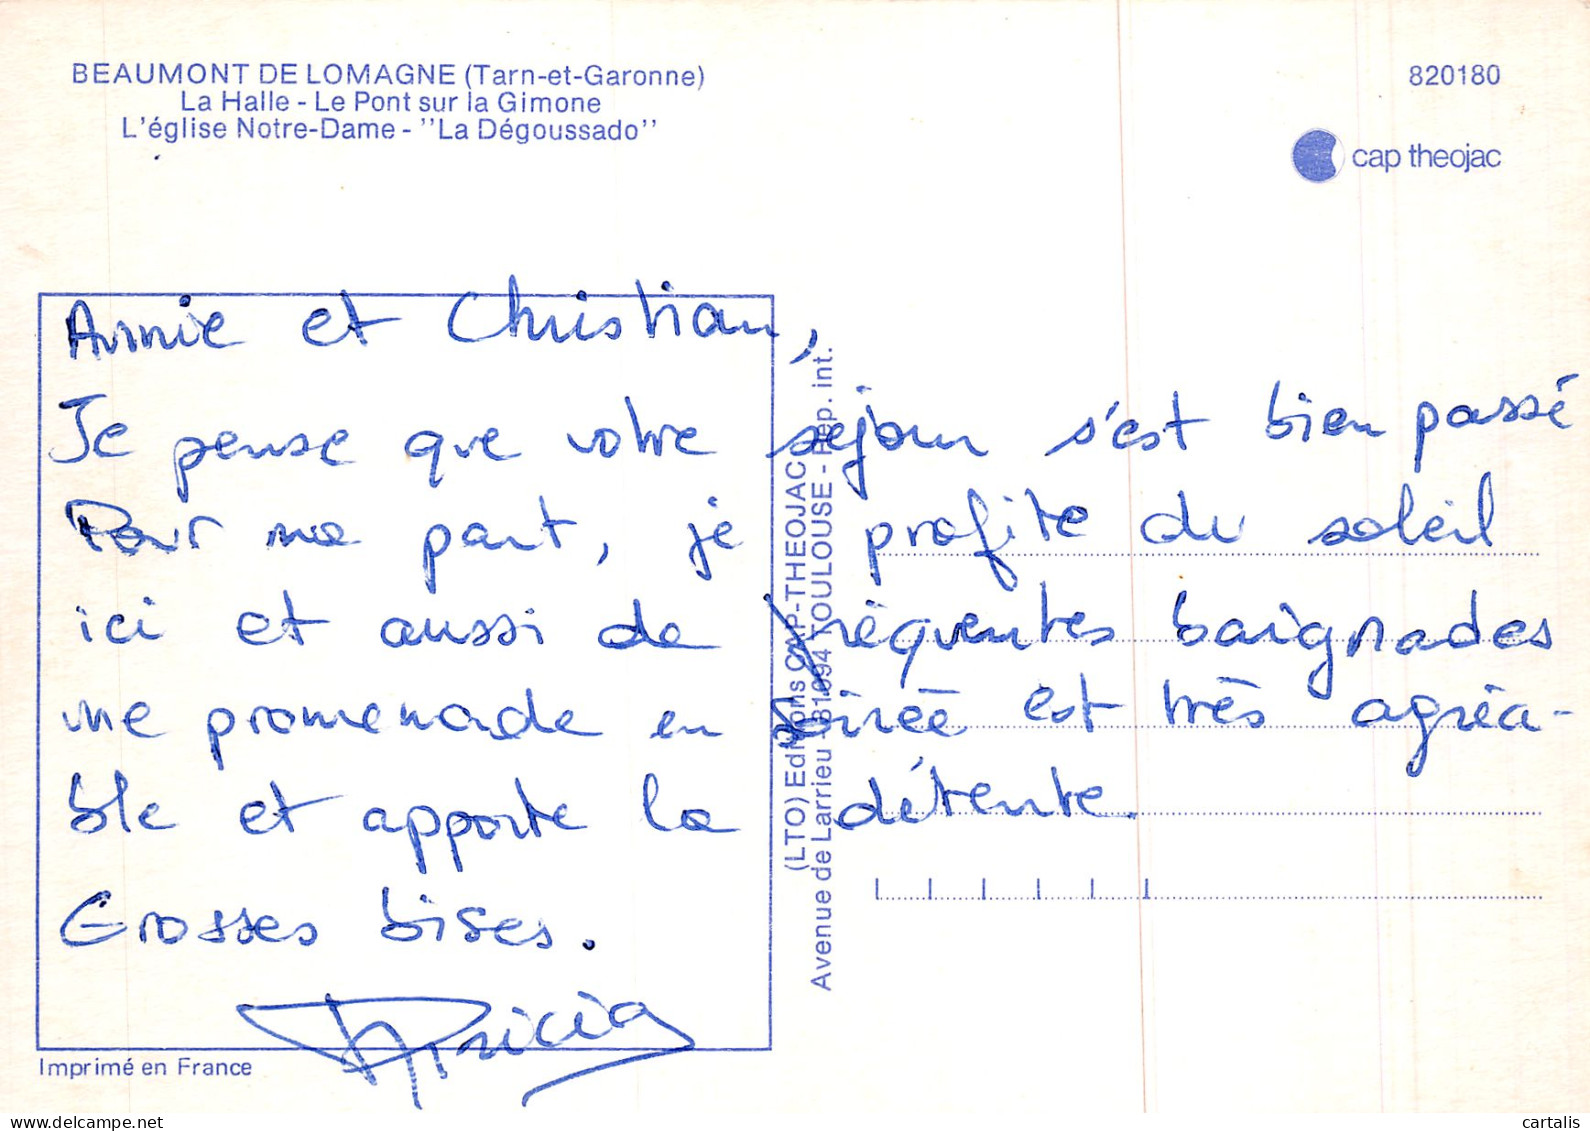 BEAUMONT DE LOMAGNE (Tarn-et-Garonne)
La Halle - Le Pont sur la Gimone
L'église Notre-Dame - "La Dégoussado"
820180
cap theojac
Annie et Christian,
Je pense que votre séjour s'est bien passé
Pour ma part, je profite du soleil
ici et aussi de fréquentes baignades
une promenade en soirée est très agréa-
ble et apporte la détente.
Grosses bises.
Patricia
(LTO) Editions CAP-THEOJAC
Avenue de Larrieu 31094 TOULOUSE - Rep. int.
Imprimé en France
www.delcampe.net
cartalis